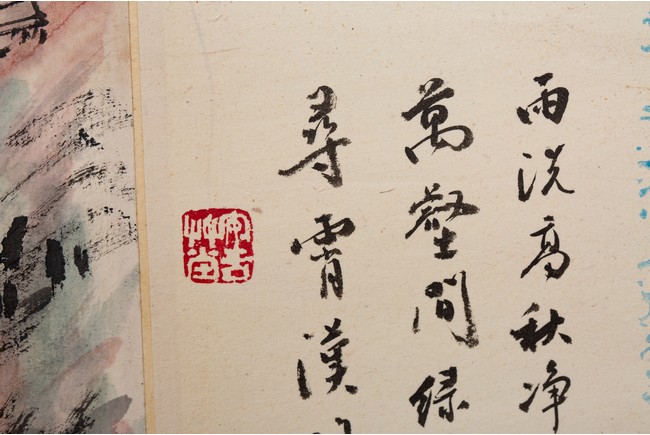 雨洗高秋净
萬壑間緑
尋霄漢